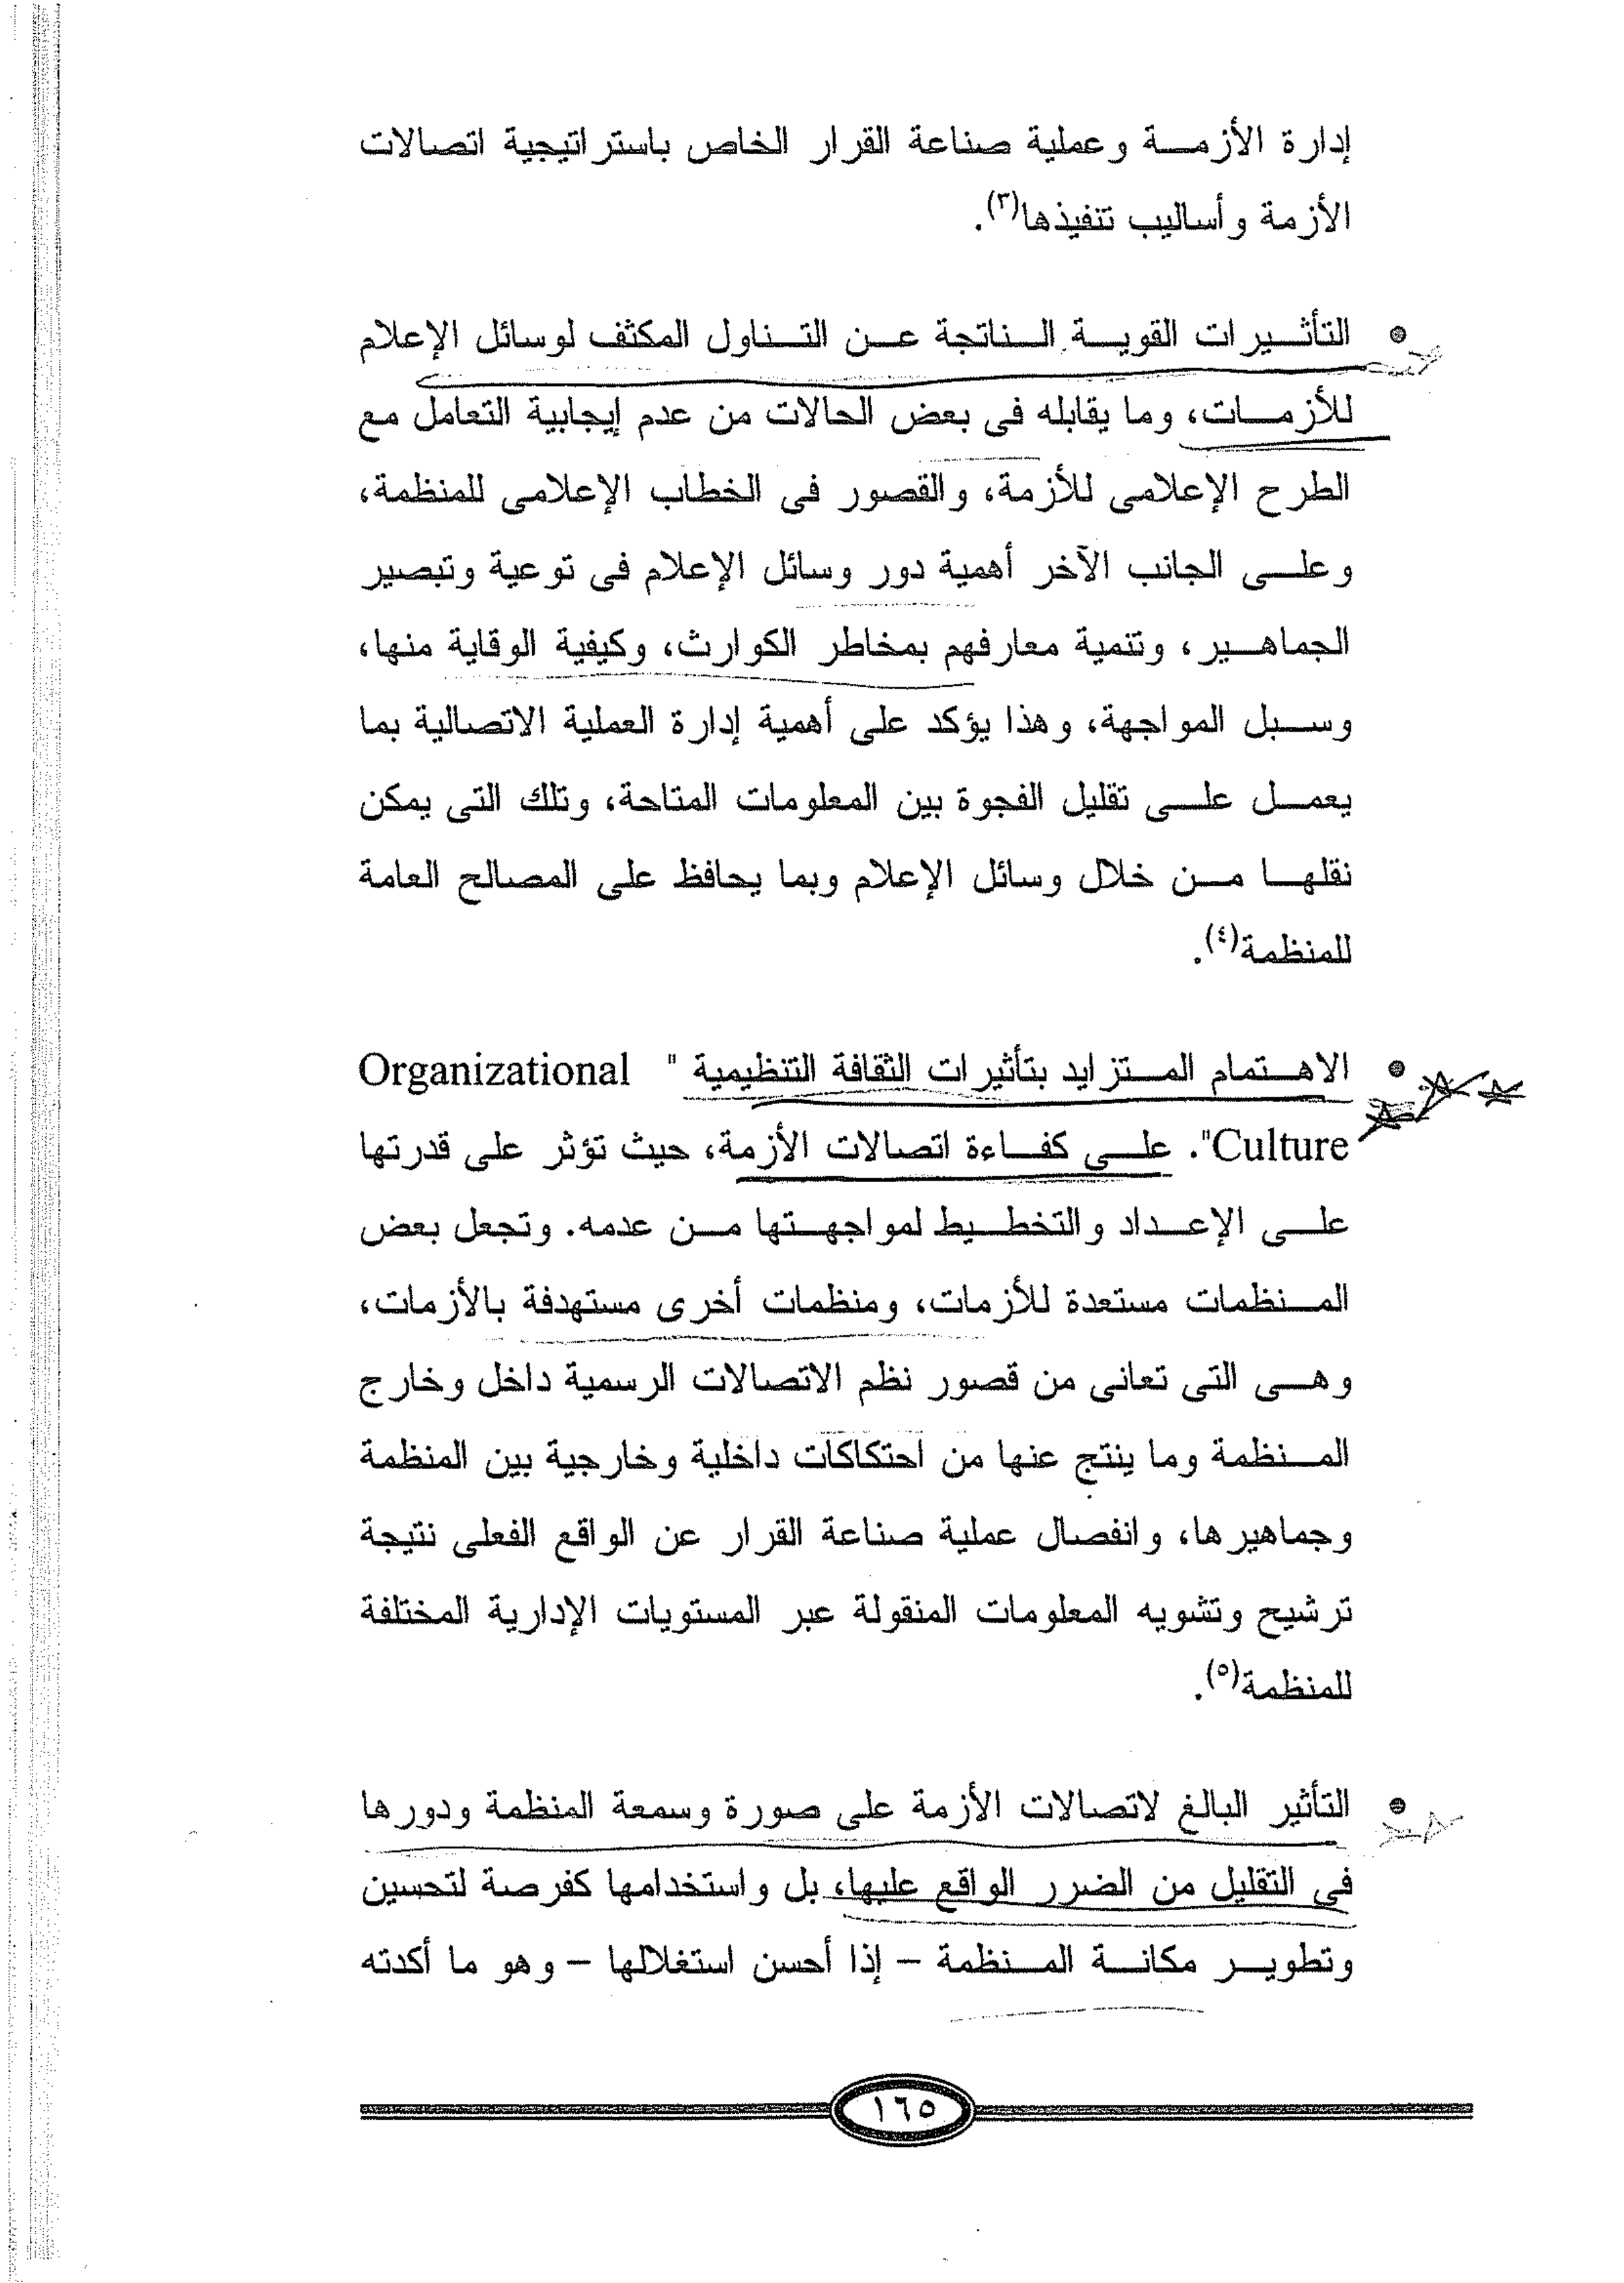 إدارة الأزمة وعملية صناعة القرار الخاص باستراتيجية اتصالات
الأزمة وأساليب تنفيذها(٣).
• التأثيرات القوية الناتجة عن التناول المكثف لوسائل الإعلام
للأزمات، وما يقابله فى بعض الحالات من عدم إيجابية التعامل مع
الطرح الإعلامى للأزمة، والقصور فى الخطاب الإعلامى للمنظمة،
وعلى الجانب الآخر أهمية دور وسائل الإعلام فى توعية وتبصير
الجماهير، وتنمية معارفهم بمخاطر الكوارث، وكيفية الوقاية منها،
وسبل المواجهة، وهذا يؤكد على أهمية إدارة العملية الاتصالية بما
يعمل على تقليل الفجوة بين المعلومات المتاحة، وتلك التى يمكن
نقلها من خلال وسائل الإعلام وبما يحافظ على المصالح العامة
للمنظمة(٤).
• الاهتمام المتزايد بتأثيرات الثقافة التنظيمية " Organizational
Culture". على كفاءة اتصالات الأزمة، حيث تؤثر على قدرتها
على الإعداد والتخطيط لمواجهتها من عدمه. وتجعل بعض
المنظمات مستعدة للأزمات، ومنظمات أخرى مستهدفة بالأزمات،
وهى التى تعانى من قصور نظم الاتصالات الرسمية داخل وخارج
المنظمة وما ينتج عنها من احتكاكات داخلية وخارجية بين المنظمة
وجماهيرها، وانفصال عملية صناعة القرار عن الواقع الفعلى نتيجة
ترشيح وتشويه المعلومات المنقولة عبر المستويات الإدارية المختلفة
للمنظمة(٥).
• التأثير البالغ لاتصالات الأزمة على صورة وسمعة المنظمة ودورها
فى التقليل من الضرر الواقع عليها، بل واستخدامها كفرصة لتحسين
وتطوير مكانة المنظمة – إذا أحسن استغلالها – وهو ما أكدته
١٦٥